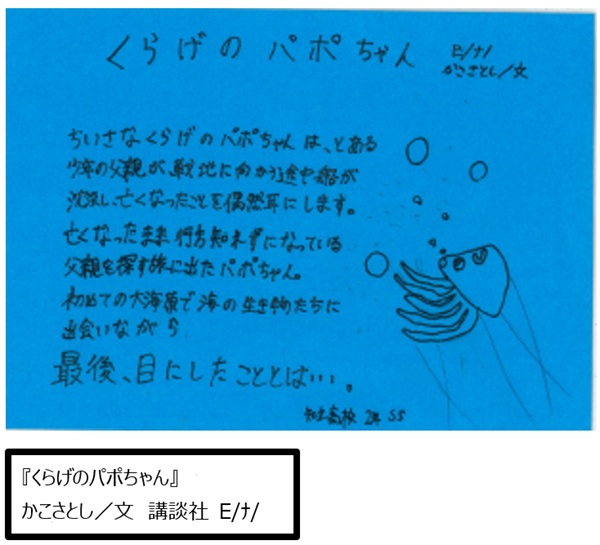 くらげの パポちゃん
E/ナ/
かこさとし/文
ちいさなくらげのパポちゃんは、とある
少年の父親が戦地に向かう途中船が
沈没し亡くなったことを偶然耳にします。
亡くなったまま行方知れずになっている
父親を探す旅に出たパポちゃん。
初めての大海原で海の生き物たちに
出会いながら
最後、目にしたこととは…。
高校 2年 SS
『くらげのパポちゃん』
かこさとし/文 講談社 E/ナ/